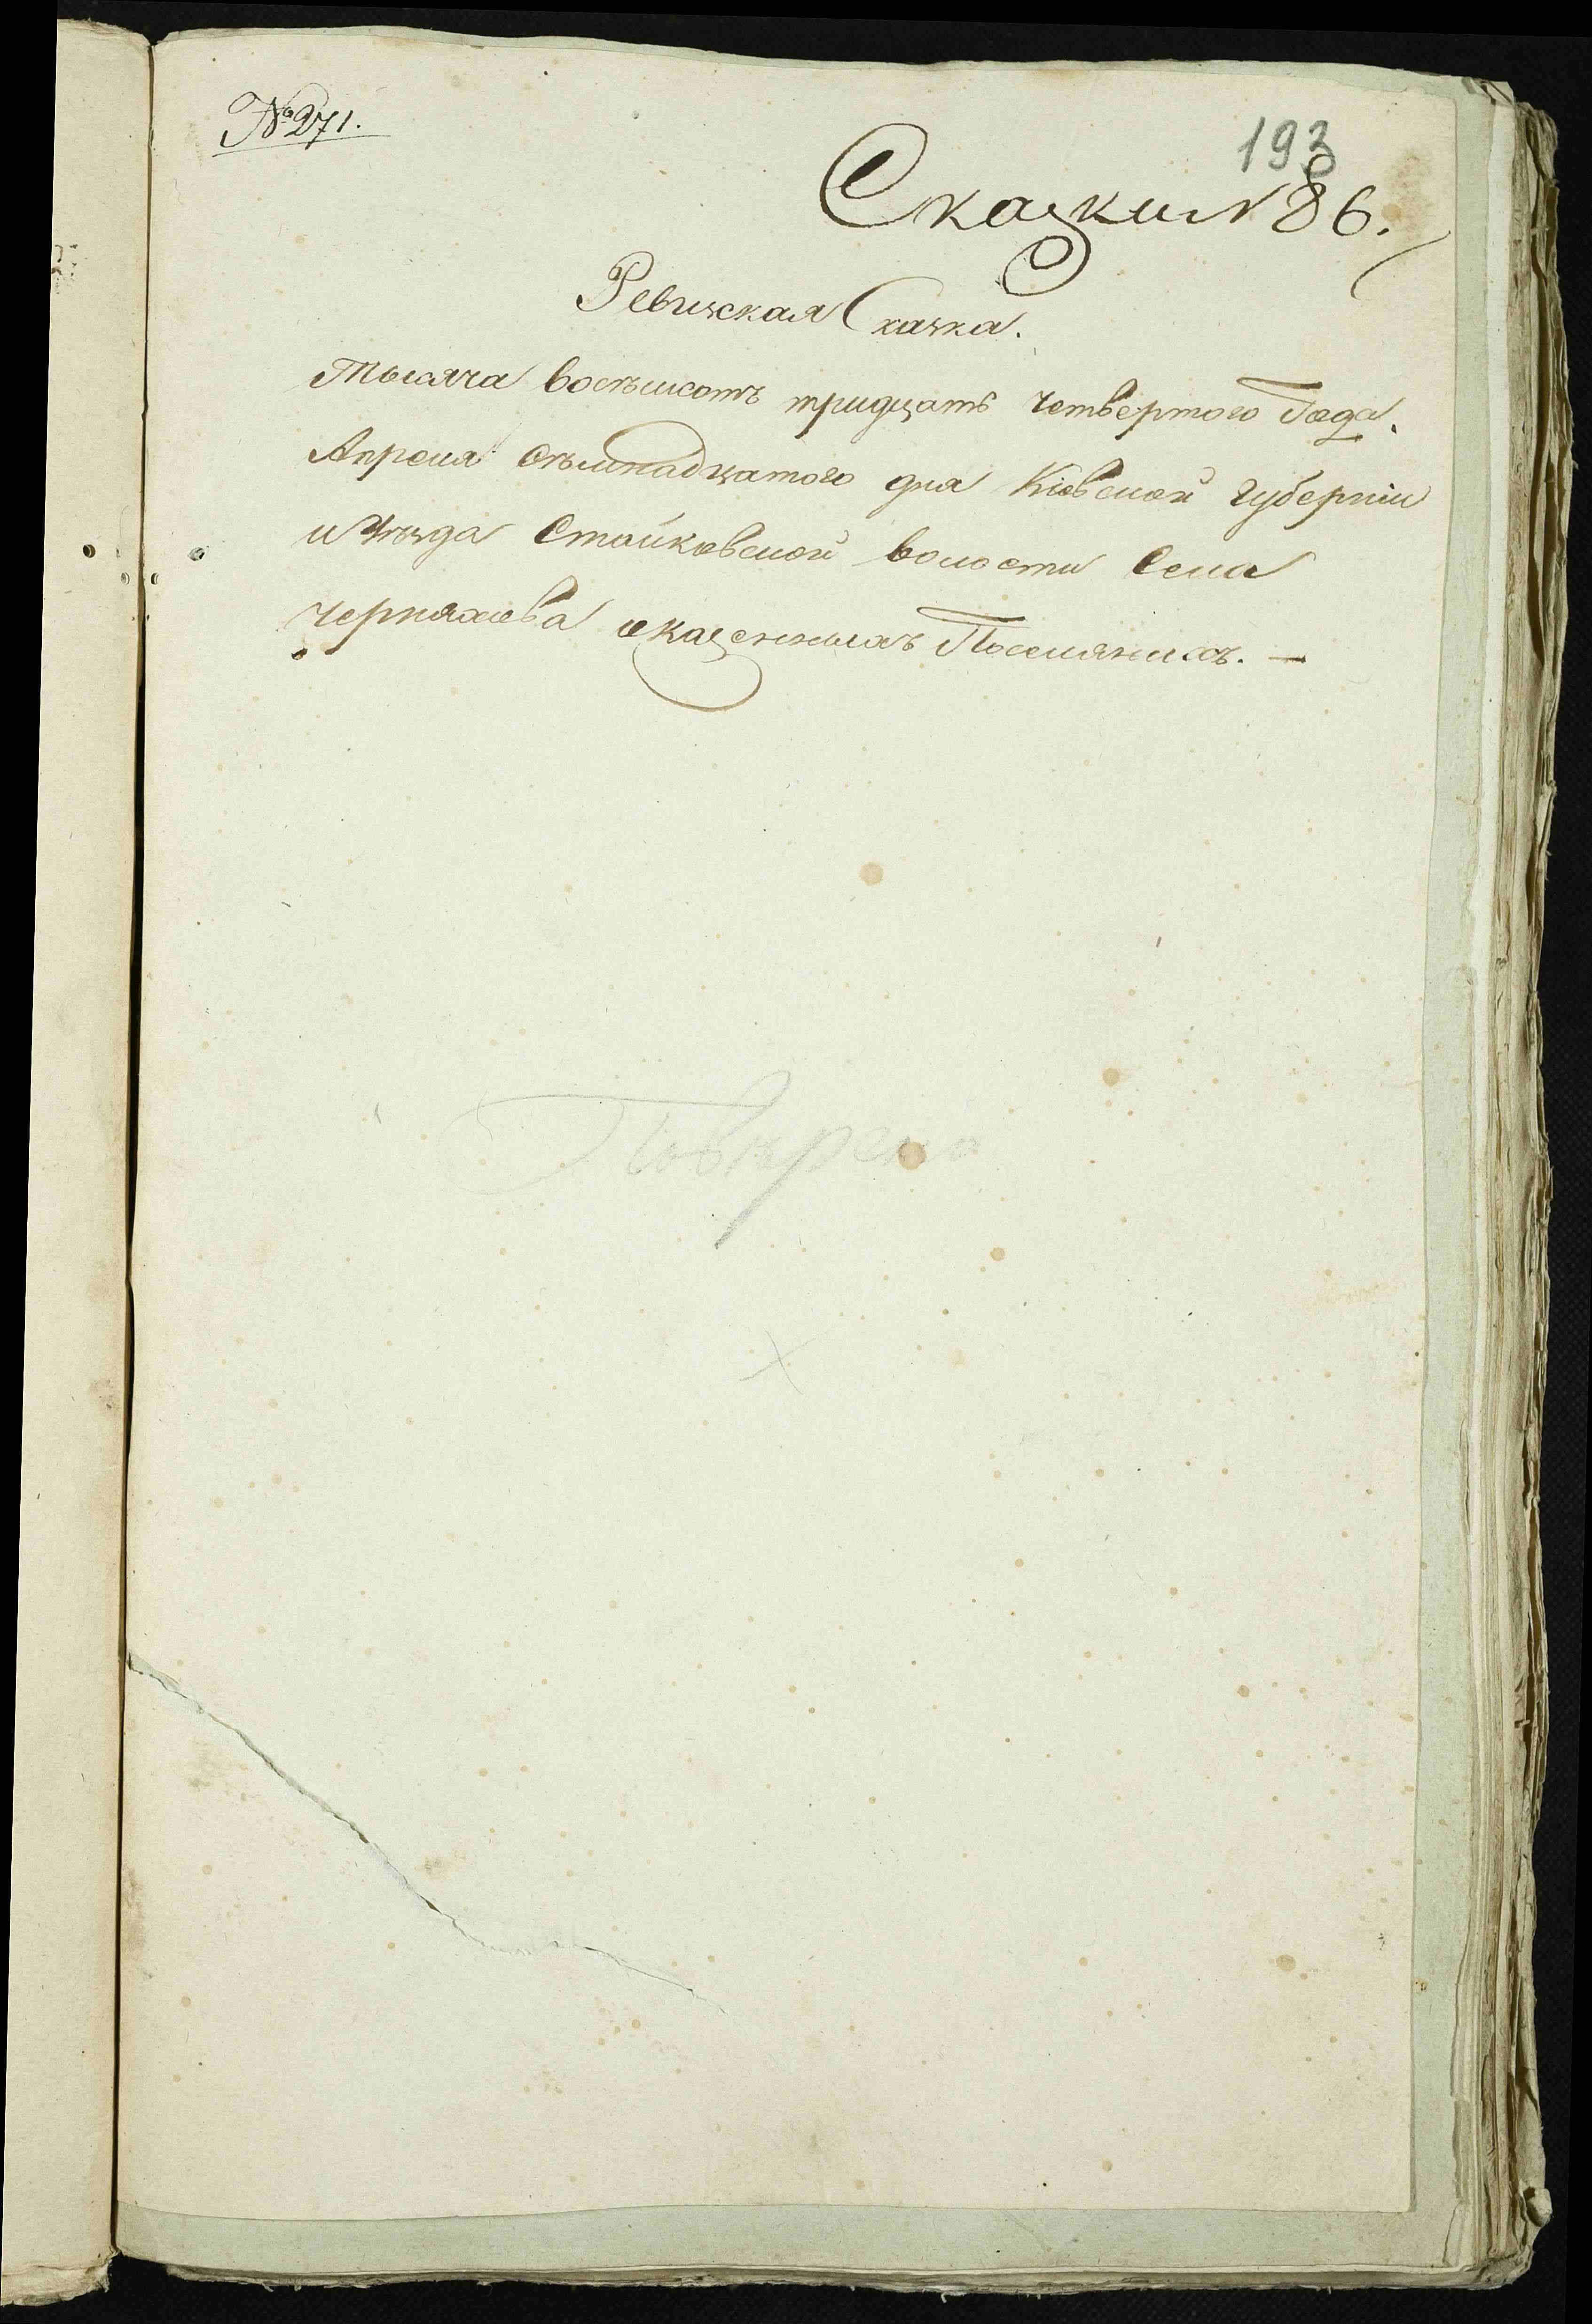 № 271.
193
Сказки N 86.
Ревизская Сказка.
Тысяча восѣмсотъ тридцать четвертого Года.
Апреля семнадцатого дня Кіевской губерніи
и уѣзда Стайковской волости Села
Черняхова о казенныхъ Поселянахъ. —
Повѣрено